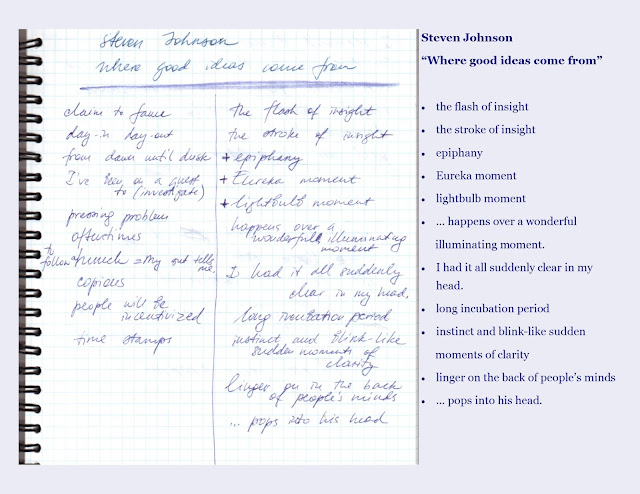 Steven Johnson
Where good ideas come from
claim to fame
day-in day-out
from dawn until dusk
I've been on a quest
to (investigate)
pressing problem
oftentimes
to follow hunch = my gut tells
me,
copious
people will be
incentivized
time stamps
the flash of insight
the stroke of insight
+ epiphany
+ Eureka moment
+ lightbulb moment
happens over a
wonderful, illuminating
moment
I had it all suddenly
clear in my head,
long incubation period
instinct and blink-like
sudden moments of
clarity
linger on in the back
of people's minds
... pops into his head
Steven Johnson
“Where good ideas come from”
• the flash of insight
• the stroke of insight
• epiphany
• Eureka moment
• lightbulb moment
• ... happens over a wonderful
illuminating moment.
• I had it all suddenly clear in my
head.
• long incubation period
• instinct and blink-like sudden
moments of clarity
• linger on the back of people’s minds
• ... pops into his head.